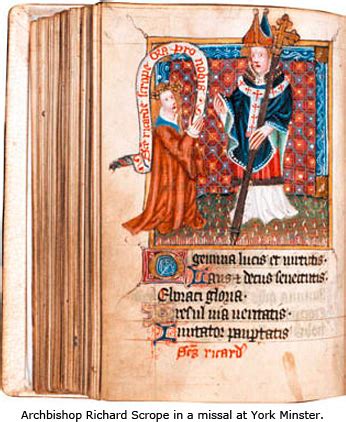 Scē ricarde scrope Ora pro nobis.
O gemma lucis et virtutis.
Laus et decus senectutis.
Eboraci gloria.
Presul uia ueritatis.
Imitator pauptatis
ricard
Archbishop Richard Scrope in a missal at York Minster.